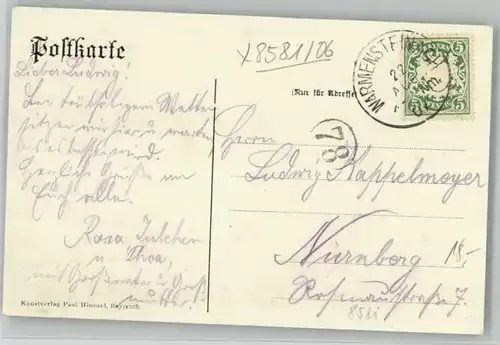 Postkarte
x8581/06
(Nur für Adresse
WARMENSTEINACH
5 5
5 5
78
Lieber Ludwig!
Bei trübseligem Wetter
sitzen wir hier u. warten
bis es besser wird.
Herzliche Grüße an
Euch alle.
Rosa Julchen
u. Thea,
mit Großvater u. Groß
mutter.
Herrn
Ludwig Kappelmayer
Nürnberg
18.-
Rosenaustraße 7.
858i
Kunstverlag Paul Himmel, Bayreuth